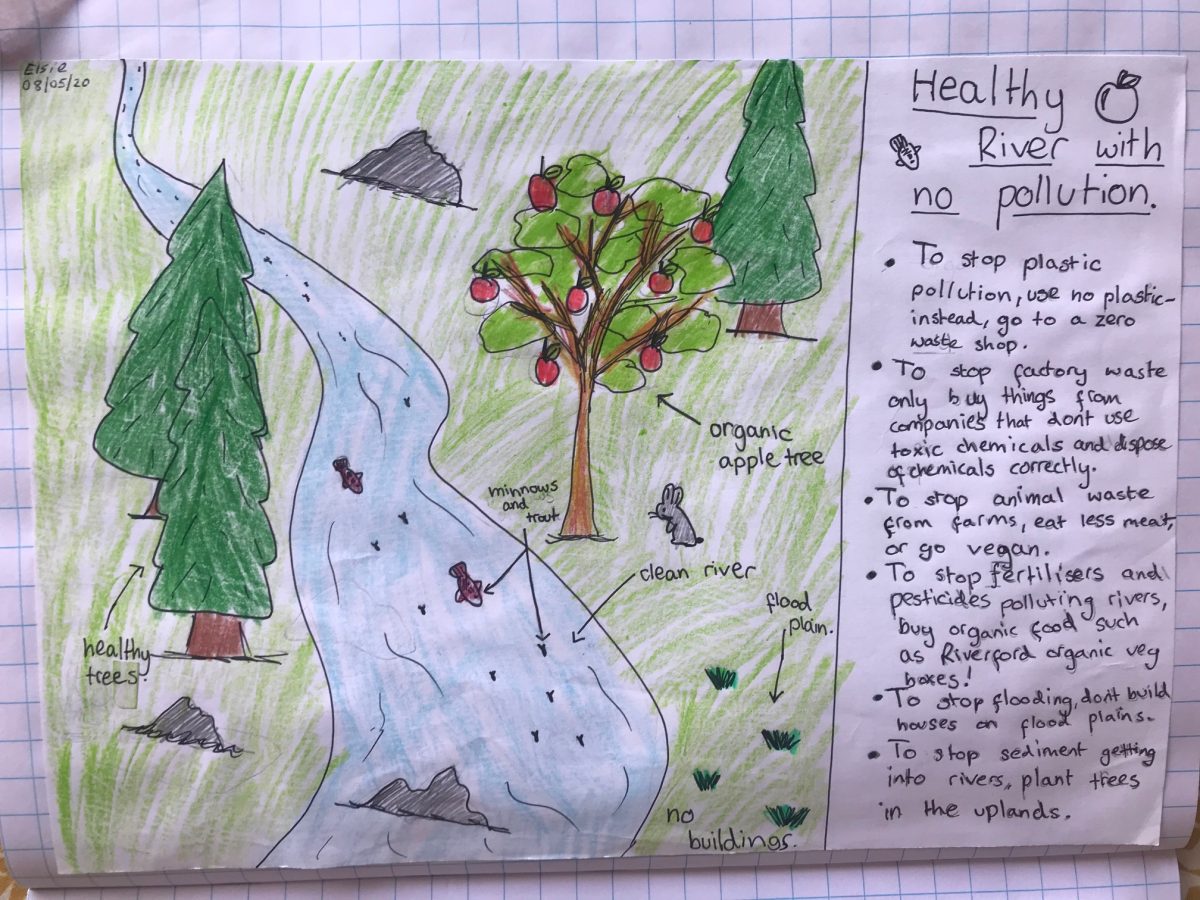 Elsie
08/05/20
Healthy
River with
no pollution.
• To stop plastic
pollution, use no plastic-
instead, go to a zero
waste shop.
• To stop factory waste
only buy things from
companies that dont use
toxic chemicals and dispose
of chemicals correctly.
• To stop animal waste
from farms, eat less meat,
or go vegan.
• To stop fertilisers and
pesticides polluting rivers,
buy organic food such
as Riverford organic veg
boxes!
• To stop flooding, dont build
houses on flood plains.
• To stop sediment getting
into rivers, plant trees
in the uplands.
organic
apple tree
minnows
and
trout.
clean river
flood
plain.
healthy
trees.
no
buildings.